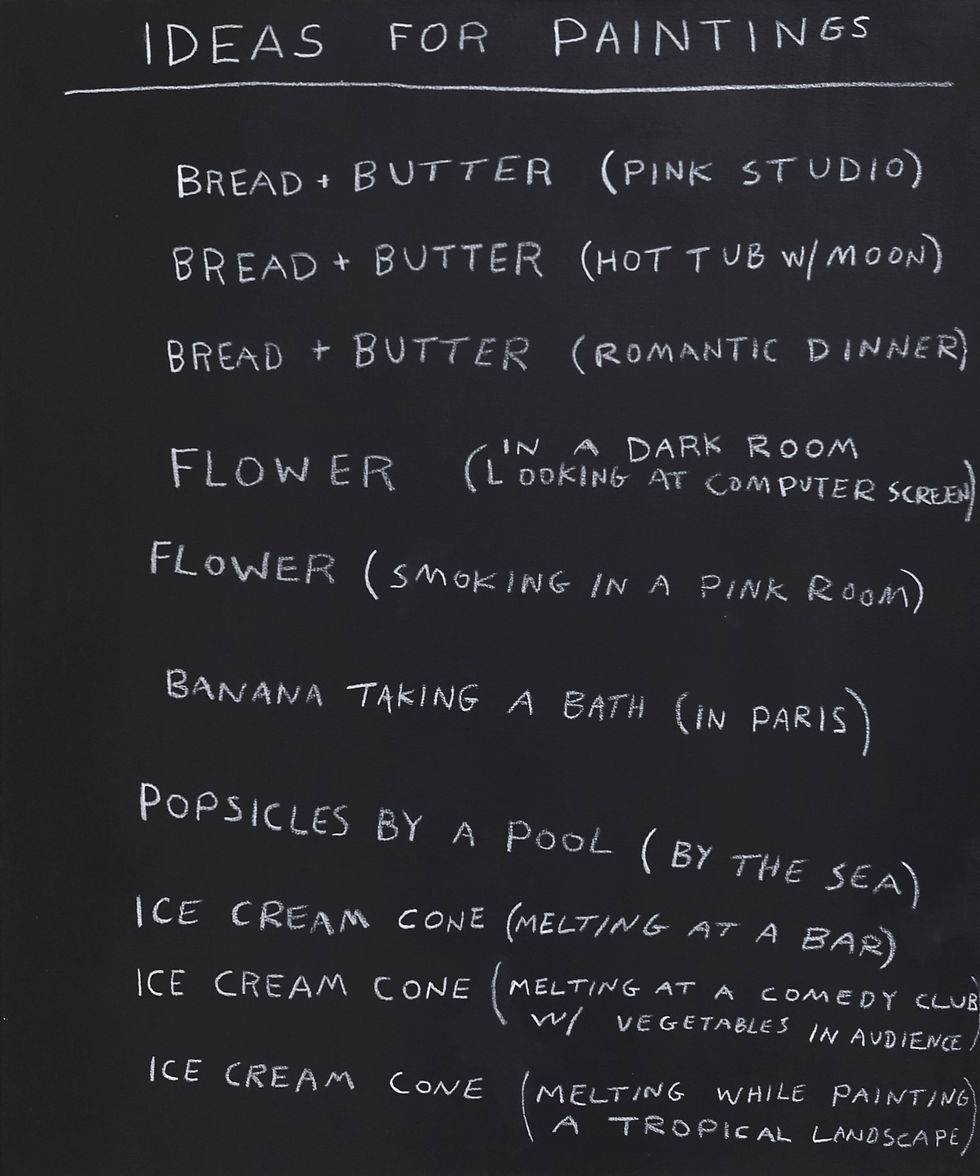 IDEAS FOR PAINTINGS
BREAD + BUTTER (PINK STUDIO)
BREAD + BUTTER (HOT TUB W/ MOON)
BREAD + BUTTER (ROMANTIC DINNER)
FLOWER (IN A DARK ROOM
LOOKING AT COMPUTER SCREEN)
FLOWER (SMOKING IN A PINK ROOM)
BANANA TAKING A BATH (IN PARIS)
POPSICLES BY A POOL (BY THE SEA)
ICE CREAM CONE (MELTING AT A BAR)
ICE CREAM CONE (MELTING AT A COMEDY CLUB
W/ VEGETABLES IN AUDIENCE)
ICE CREAM CONE (MELTING WHILE PAINTING
A TROPICAL LANDSCAPE)